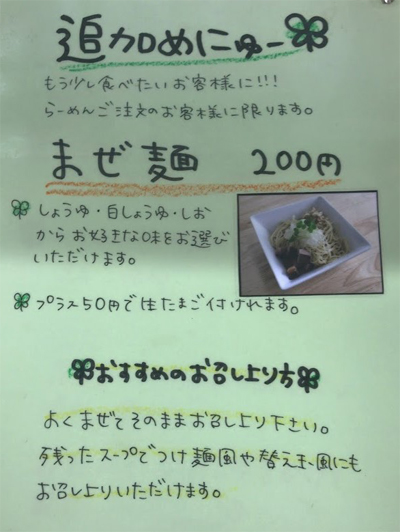 追加めにゅー
もう少し食べたいお客様に!!!
らーめんご注文のお客様に限ります。
まぜ麺 200円
しょうゆ・白しょうゆ・しお
からお好きな味をお選び
いただけます。
プラス50円で生たまご付けれます。
おすすめのお召し上り方
よくまぜてそのままお召し上り下さい。
残ったスープでつけ麺風や替え玉風にも
お召し上りいただけます。